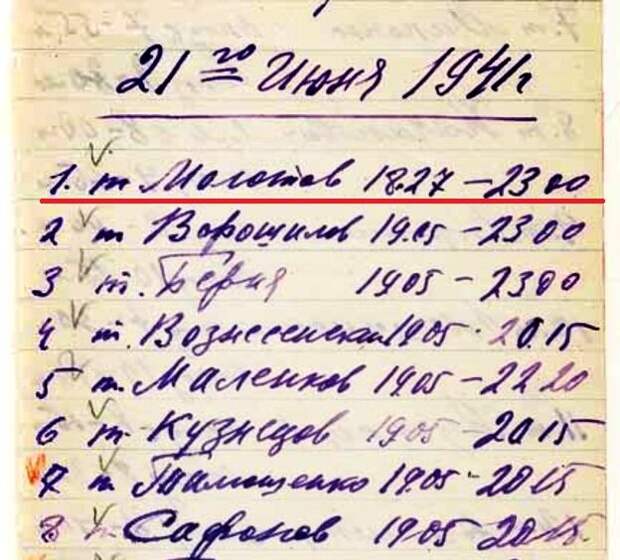 21го Июня 1941г
1. т Молотов 18.27 – 23 00
2 т Ворошилов 19.05 – 23 00
3 т. Берия 19 05 – 23 00
4 т. Вознесенский 19 05 - 20.15
5 т. Маленков 19 05 – 22 20
6 т. Кузнецов 19 05 – 20 15
7 т Тимошенко 19.05 - 20 15
8 т. Сафонов 19 05 – 20 15